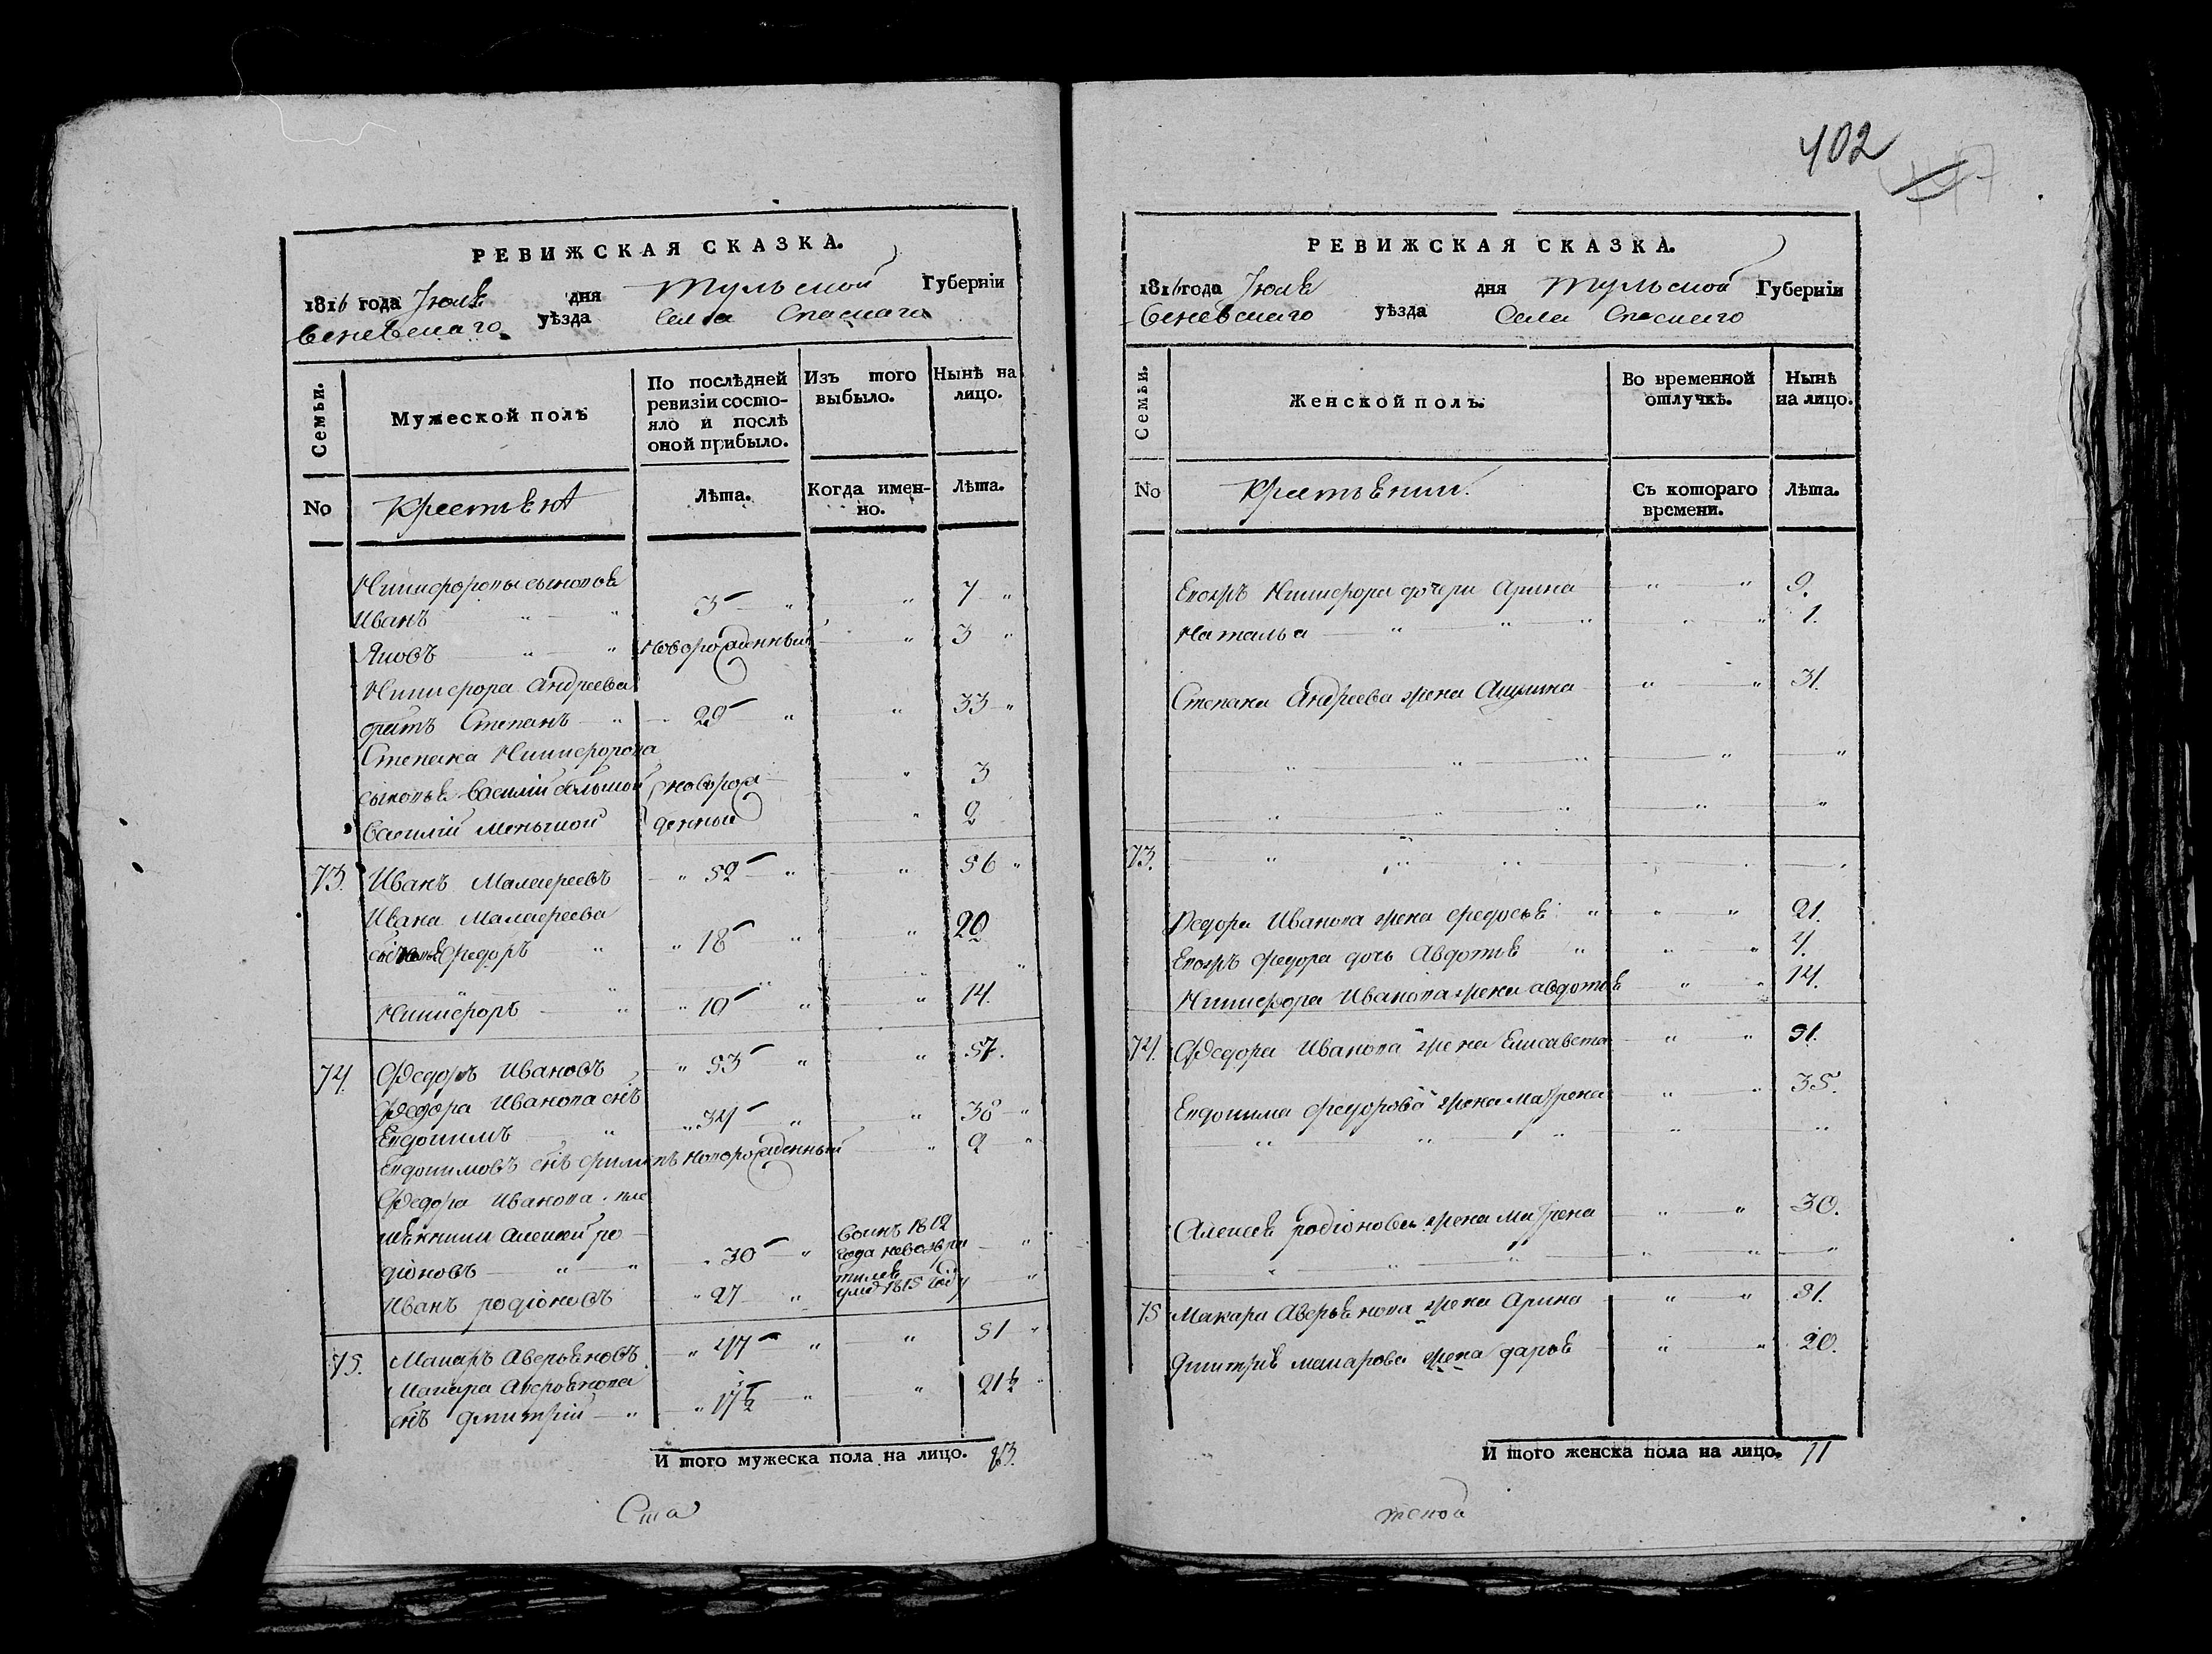 402
РЕВИЖСКАЯ СКАЗКА.
1816 года Июля дня Тульской Губерніи
Веневскаго уѣзда Села Спаскаго
Семьи.
Мужеской полъ
По послѣдней ревизіи состояло и послѣ оной прибыло.
Изъ того выбыло.
Нынѣ на лицо.
No
Крестьянѣ
Лѣта.
Когда именно.
Лѣта.
Никифоровы сыновья
Иванъ " " 3 " " 7 "
Яковъ " " новорожденный " 3 "
Никифора Андреева
братъ Степанъ " 29 " " 33 "
Степана Никифорова
сыновья Василій большой новорож " 3
Василій меньшой денныи " 2
73. Иванъ Малафеевъ " 52 " " 56 "
Ивана Малафеева
Федоръ " " 18 " " 20
Никифоръ " " 10 " " 14.
74 Федоръ Ивановъ " 53 " " 57.
Федора Иванова снъ
Евдокимъ " " 34 " " 38 "
Евдокимовъ снъ Филипъ новорожденный " 2 "
Федора Иванова пле
мянники Алексѣй ро
діоновъ " " 30 " Воинъ 1812 года невозвратился "
Иванъ родіоновъ " 27 " 1815 году "
75. Макаръ Аверьяновъ " 47 " " 51 "
Макара Аверьянова
снъ Дмитрій " " 17 1/2 " " 21 1/2 "
И того мужеска пола на лицо. 13.
Ста
РЕВИЖСКАЯ СКАЗКА.
1816 года Июля дня Тульской Губерніи
Веневскаго уѣзда Села Спаскаго
Семьи.
Женской полъ.
Во временной отлучкѣ.
Нынѣ на лицо.
No
Крестьянки.
Съ котораго времени.
Лѣта.
Евожъ Никифора дочери Арина " " 9.
Наталья " " " " " 1.
Степана Андреева жена Акулина " " 31.
" " " " "
" " " " "
73. " " " " "
Федора Иванова жена Федосья " " " 21.
Евожъ Федора дочь Авдотья " " " 4.
Никифора Иванова жена авдотья " " 14.
74. Федора Иванова жена Елисавета " " 51.
Евдокима Федорова жена Матрена " " 35.
" " " " "
Алексѣя родіонова жена Матрена " " 30.
" " " " " "
75 Макара Аверьянова жена Арина " " 51.
Дмитрія макарова жена дарья " " 20.
И того женска пола на лицо. 11
тской